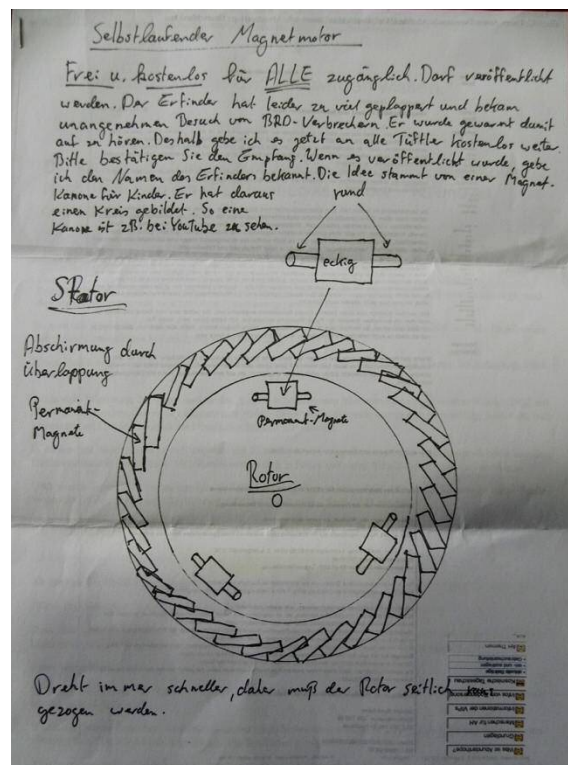 Selbstlaufender Magnetmotor
Frei u. kostenlos für ALLE zugänglich. Darf veröffentlicht
werden. Der Erfinder hat leider zu viel geplappert und bekam
unangenehmen Besuch von BRD-Verbrechern. Er wurde gewarnt damit
auf zu hören. Deshalb gebe ich es jetzt an alle Tüftler kostenlos weiter.
Bitte bestätigen Sie den Empfang. Wenn es veröffentlicht wurde, gebe
ich den Namen des Erfinders bekannt. Die Idee stammt von einer Magnet-
Kanone für Kinder. Er hat daraus
einen Kreis gebildet. So eine
Kanone ist zB. bei YouTube zu sehen.
rund
eckig
Stator
Abschirmung durch
Überlappung
Permanent-
Magnete
Permanent-Magnete
Rotor
Dreht immer schneller, daher muß der Rotor seitlich
gezogen werden.